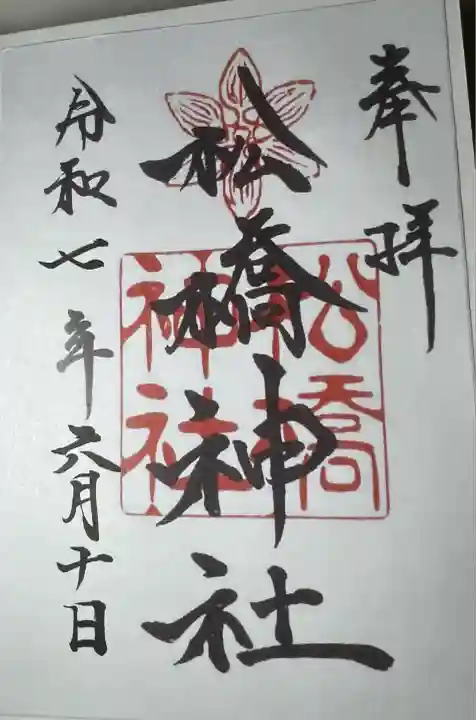 奉拝
松橋神社
松橋神社
令和七年六月十日